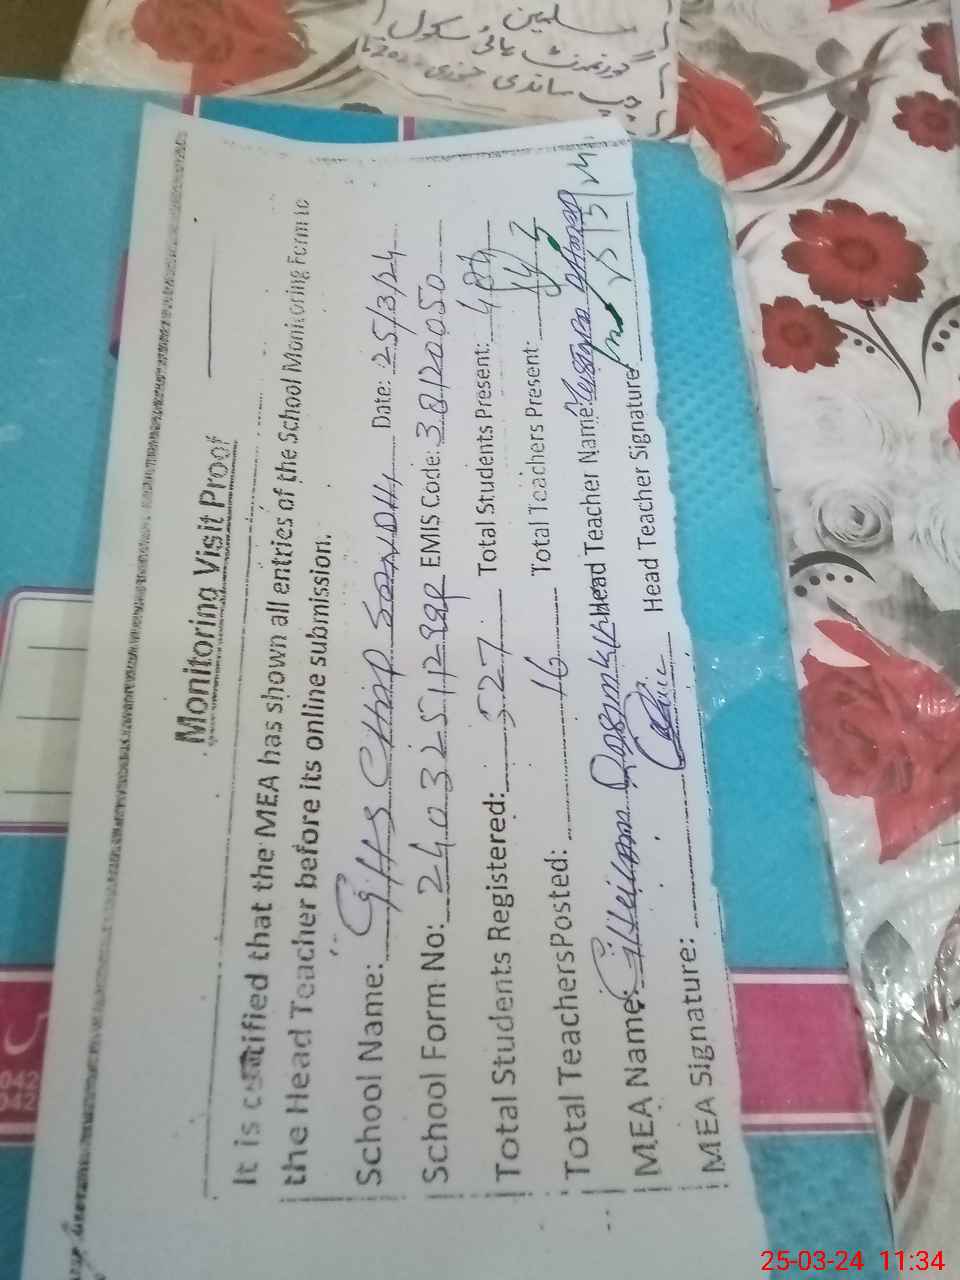 گورنمنٹ ہائی سکول
Monitoring Visit Proof
It is certified that the MEA has shown all entries of the School Monitoring Form to
the Head Teacher before its online submission.
School Name: GHS CHAP SANDHI Date: 25/3/24
School Form No: EMIS Code: 38120050
Total Students Registered: 527 Total Students Present: 484
Total TeachersPosted: 16 Total Teachers Present: 14
MEA Name: Head Teacher Name:
MEA Signature: Head Teacher Signature:
042
042
25-03-24 11:34